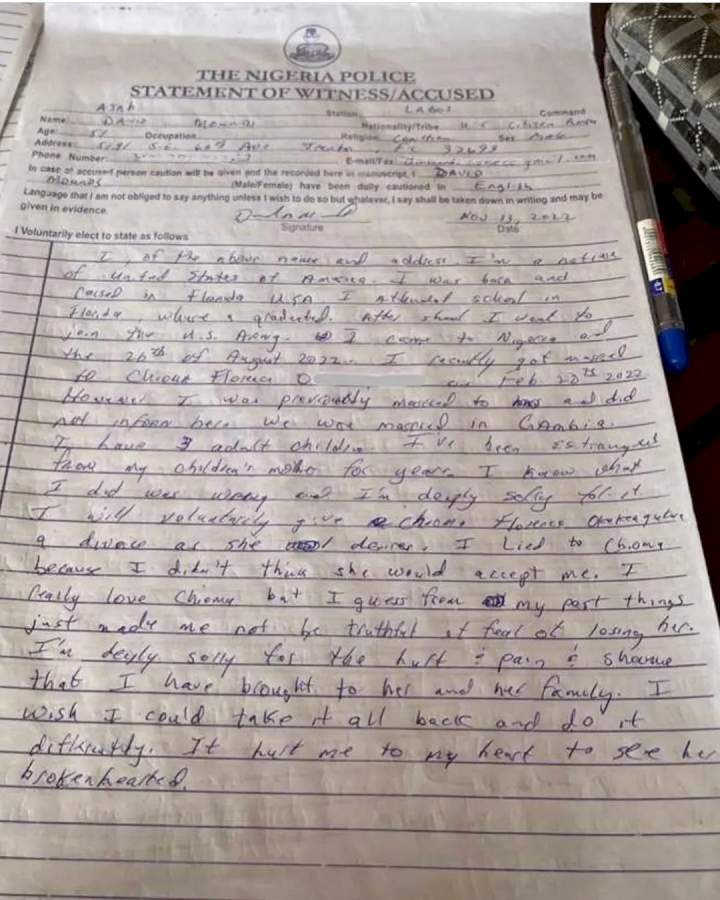 THE NIGERIA POLICE
STATEMENT OF WITNESS/ACCUSED
AJAH Station LAGOS Command
Name: DAVID Nationality/Tribe U.S Citizen Sex Male
Age: 51 Occupation Religion Christian
Address 60th Ave FL
Phone Number: E-mail/Fax
In case of accused person caution will be given and the recorded here in manuscript, I DAVID
(Male/Female) have been dully cautioned in English
Language that I am not obliged to say anything unless I wish to do so but whatever, I say shall be taken down in writing and may be
given in evidence.
Nov 13, 2022
Signature Date
I Voluntarily elect to state as follows
I, of the above name and address. I'm a native
of United States of America. I was born and
raised in Florida USA I attended school in
Florida, where I graduated. After school I went to
join the U.S. Army. I came to Nigeria on
the 26th of August 2022. I recently got married
to Chioma Florence O on Feb 28th 2022
However I was previously married to and did
not inform her. We was married in GAmbia.
I have 3 adult children. I've been estranged
from my children's mother for years. I know what
I did was wrong and I'm deeply sorry for it
I will voluntarily give Chioma Florence
a divorce as she desires. I Lied to Chioma
because I didn't think she would accept me. I
really love Chioma but I guess from my past things
just made me not be truthful of fear of losing her.
I'm deeply sorry for the hurt & pain & shame
that I have brought to her and her family. I
wish I could take it all back and do it
differently. It hurt me to my heart to see her
brokenhearted.